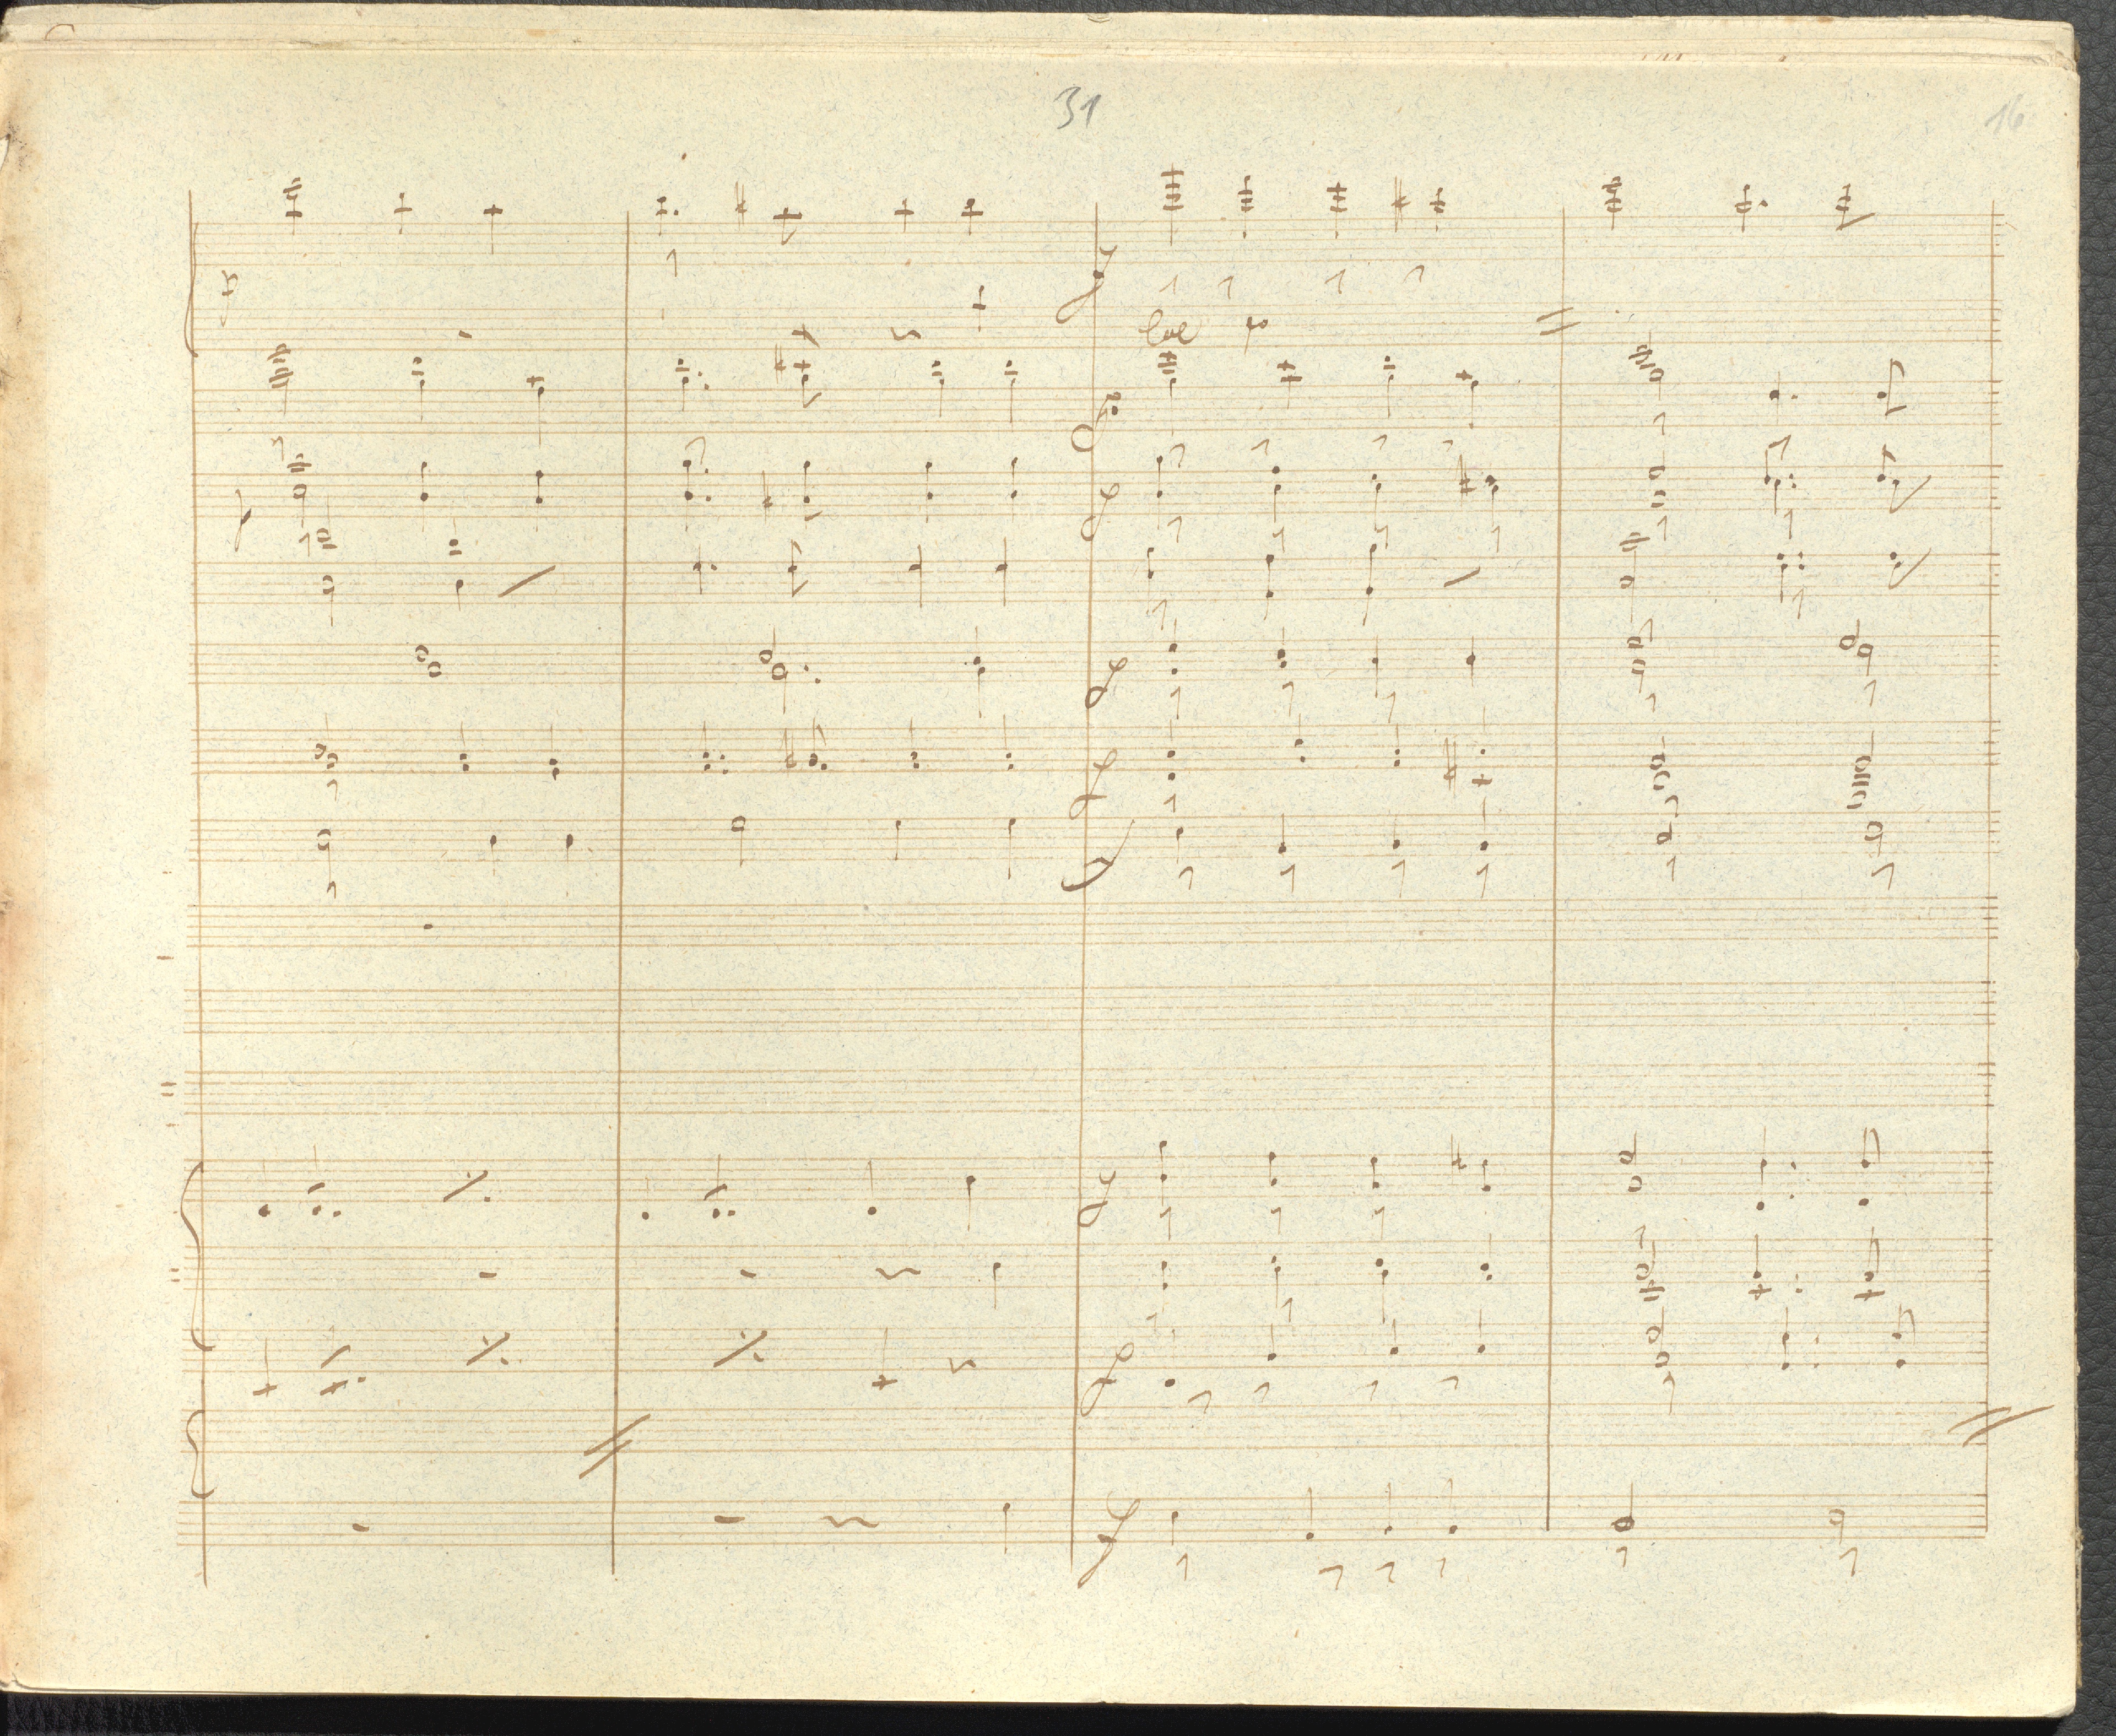 31
16
p
f
f
p
f
f
f
f
f
f
f